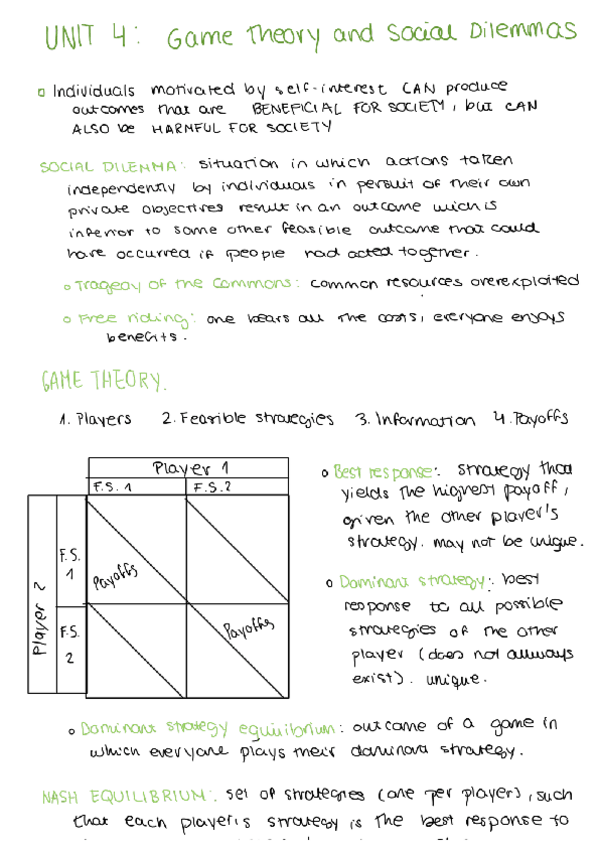 UNIT 4: Game Theory and Social Dilemmas
Individuals motivated by self-interest CAN produce
outcomes that are BENEFICIAL FOR SOCIETY, but CAN
ALSO be HARMFUL FOR SOCIETY
SOCIAL DILEMMA: situation in which actions taken
independently by individuals in persuit of their own
private objectives result in an outcome wich is
inferior to some other feasible outcome that could
have occurred if people had acted together.
Tragedy of the Commons: common resources overexploited
Free riding: one bears all the costs, everyone enjoys
benefits.
GAME THEORY.
1. Players 2. Feasible strategies 3. Information 4. Payoffs
Player 1
F.S. 1 F.S. 2
Player 2
F.S.
1
Payoffs
F.S.
2
Payoffs
Best response: strategy that
yields the highest payoff,
given the other player's
strategy. may not be unique.
Dominant strategy: best
response to all possible
strategies of the other
player (does not allways
exist). unique.
Dominant strategy equilibrium: outcome of a game in
which everyone plays their dominant strategy.
NASH EQUILIBRIUM: set of strategies (one per player), such
that each player's strategy is the best response to